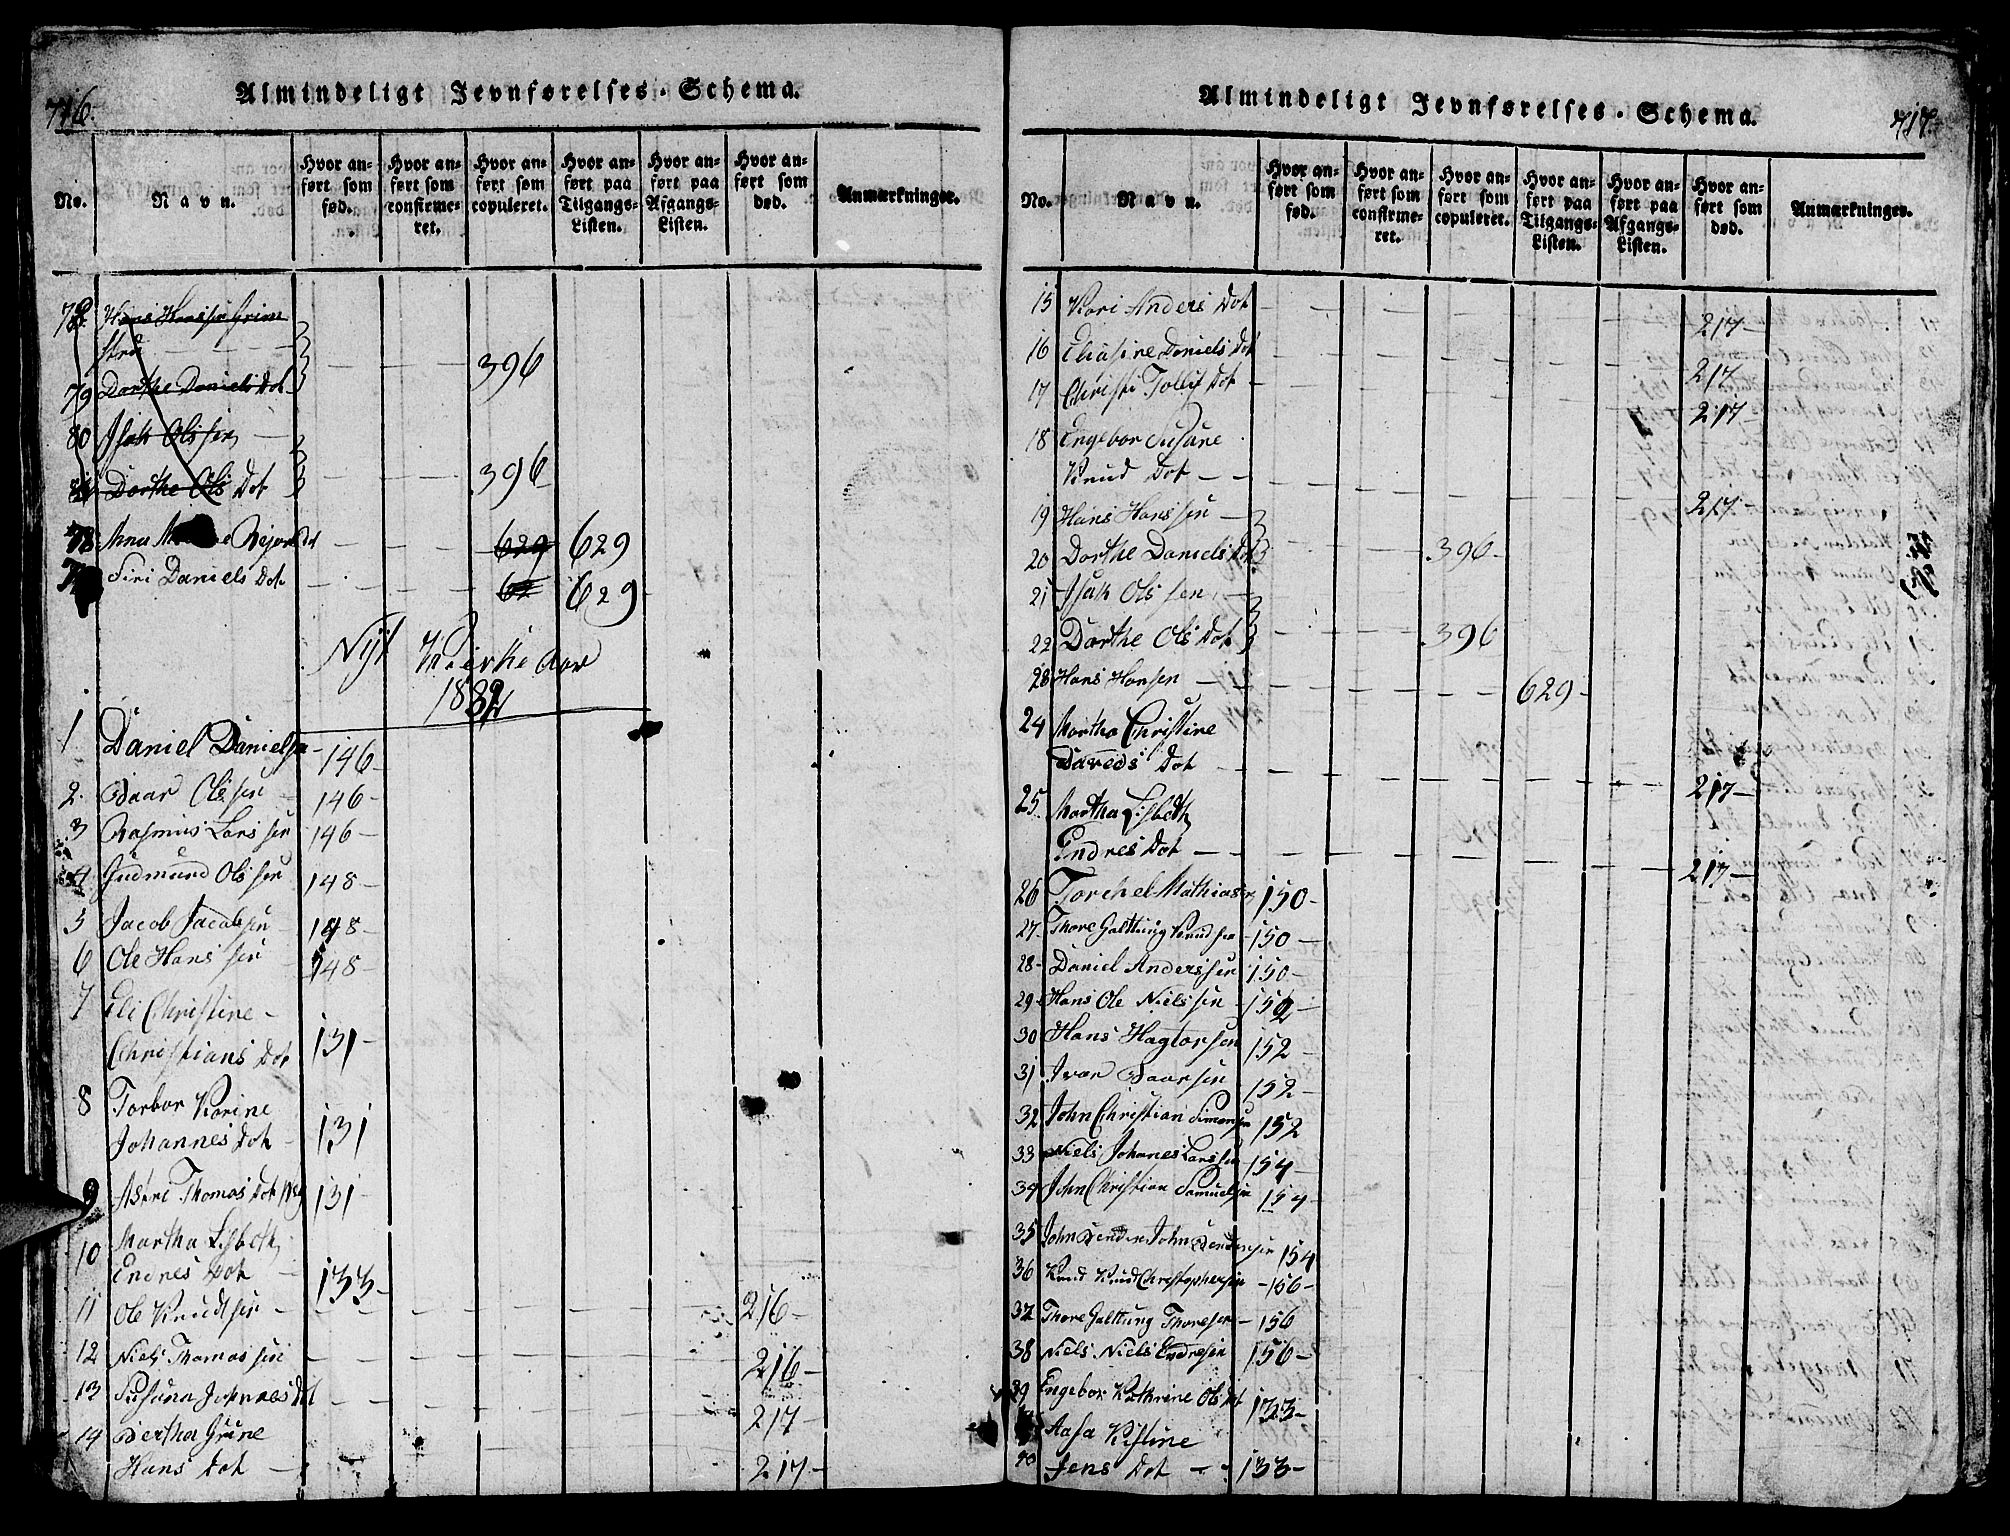 716.
Almindeligt Jevnførelses-Schema.
No. Navn. Hvor anført som fød. Hvor anført som confirmeret. Hvor anført som copuleret. Hvor anført paa Tilgangs-Listen. Hvor anført paa Afgangs-Listen. Hvor anført som død. Anmærkninger.
78 Hans Hanssen Grim
stru
79 Dorthe Daniels Dot 396
80 Isak Olssen
Dorthe Ols Dot 396
78 Anna 629 629
Siri Daniels Dot 62 629
Nÿt Kierke Aar
1832
1 Daniel Danielsen 146
2. Baar Olssen 146
3 Rasmus Larssen 146
4 Gudmund Olssen 148
5 Jacob Jacobsen 148
6 Ole Hanssen 148
7 Eli Christine
Christians Dot 131
8 Torbor Karine
Johannes Dot 131
9 Astri Thomas Dot 131
10 Martha Lisbeth
Endres Dot 133
11 Ole Knudtsen 216
12 Niels Thomassen 216
13 Susana Dot 217
14 Bertha Grune
Hans Dot 217
717.
Almindeligt Jevnførelses-Schema.
No. Navn. Hvor anført som fød. Hvor anført som confirmeret. Hvor anført som copuleret. Hvor anført paa Tilgangs-Listen. Hvor anført paa Afgangs-Listen. Hvor anført som død. Anmærkninger.
15 Kari Anders Dot 217
16 Daniels Dot 217
17 Christi Dot 217
18 Engebor Susane
Knud Dot 217
19 Hans Hanssen
20 Dorthe Daniels Dot 396
21 Isak Olssen
22 Dorthe Ols Dot 396
23 Hans Hansen 629
24 Martha Christine
Dot 217
25 Martha Lisbeth
Endres Dot 217
26 Torchel Mathiasen 150
27 Thore Galttung Knudsen 150
28 Daniel Anderssen 150
29 Hans Ole Nielssen 152
30 Hans Hagtorsen 152
31 Ivar Baarsen 152
32 John Christian Simonsen 152
33 Niels Johanes Larssen 154
34 John Christian Samuelsen 154
35 John John 154
36 Knud Knud Christophersen 156
37 Thore Galttung Thoresen 156
38 Niels Niels Endresen 156
39 Engebor Kathrine Ols Dot 133
Aasa Kistine
40 Jens Dot 133